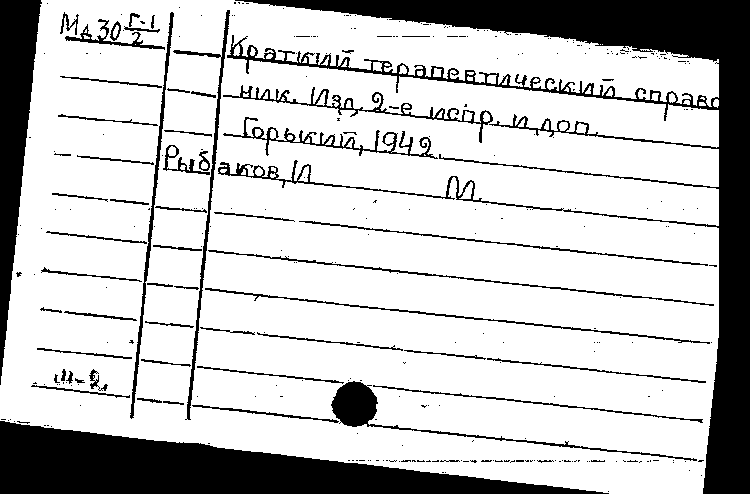 Мд 30 Г-1/2
Краткий терапевтический справо
ник. Изд. 2-е испр. и доп.
Горький, 1942.
Рыбаков, И М.
Ш-2.